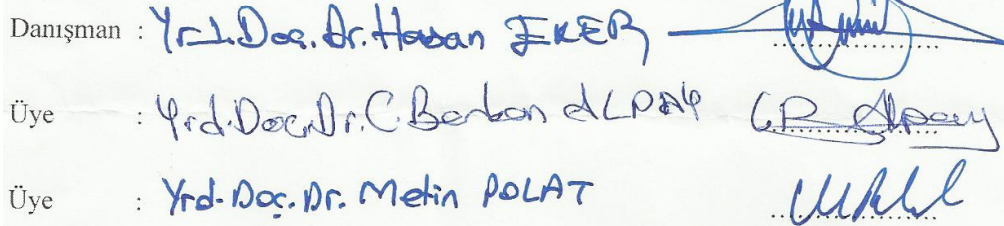 Danışman : Yrd.Doç.Dr.Hasan EKER ..................
Üye : Yrd.Doç.Dr.C.Berkan ALPAY C.B. Alpay
Üye : Yrd.Doç.Dr. Metin POLAT ..................